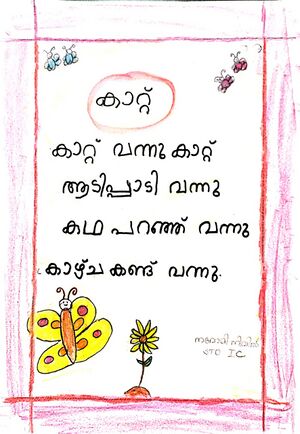 കാറ്റ്
കാറ്റ് വന്നു കാറ്റ്
ആടിപ്പാടി വന്നു
കഥ പറഞ്ഞ് വന്നു
കാഴ്ച കണ്ട് വന്നു.
STD IC